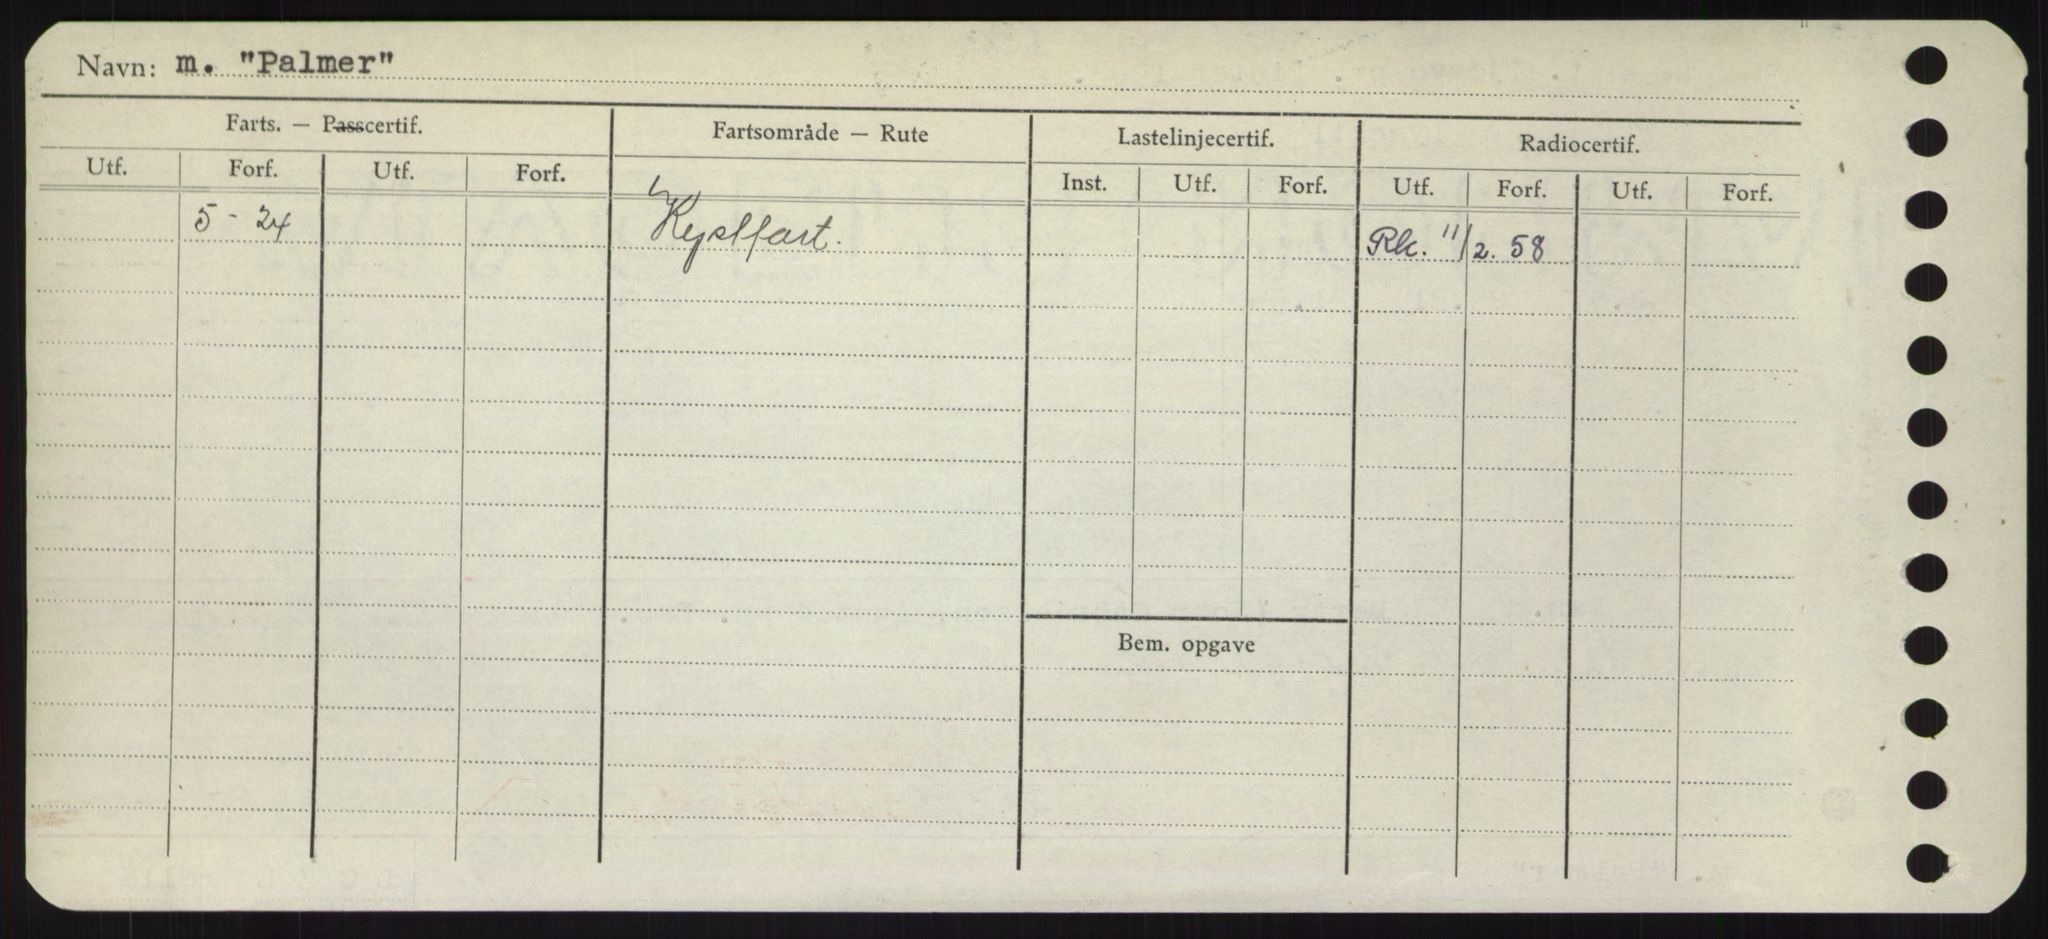 Navn: m. "Palmer"
Farts. — Passcertif. Fartsområde — Rute Lastelinjecertif. Radiocertif.
Utf. Forf. Utf. Forf. Inst. Utf. Forf. Utf. Forf. Utf. Forf.
5 - 24 Kystfart. Rk. 11/2. 58
Bem. opgave